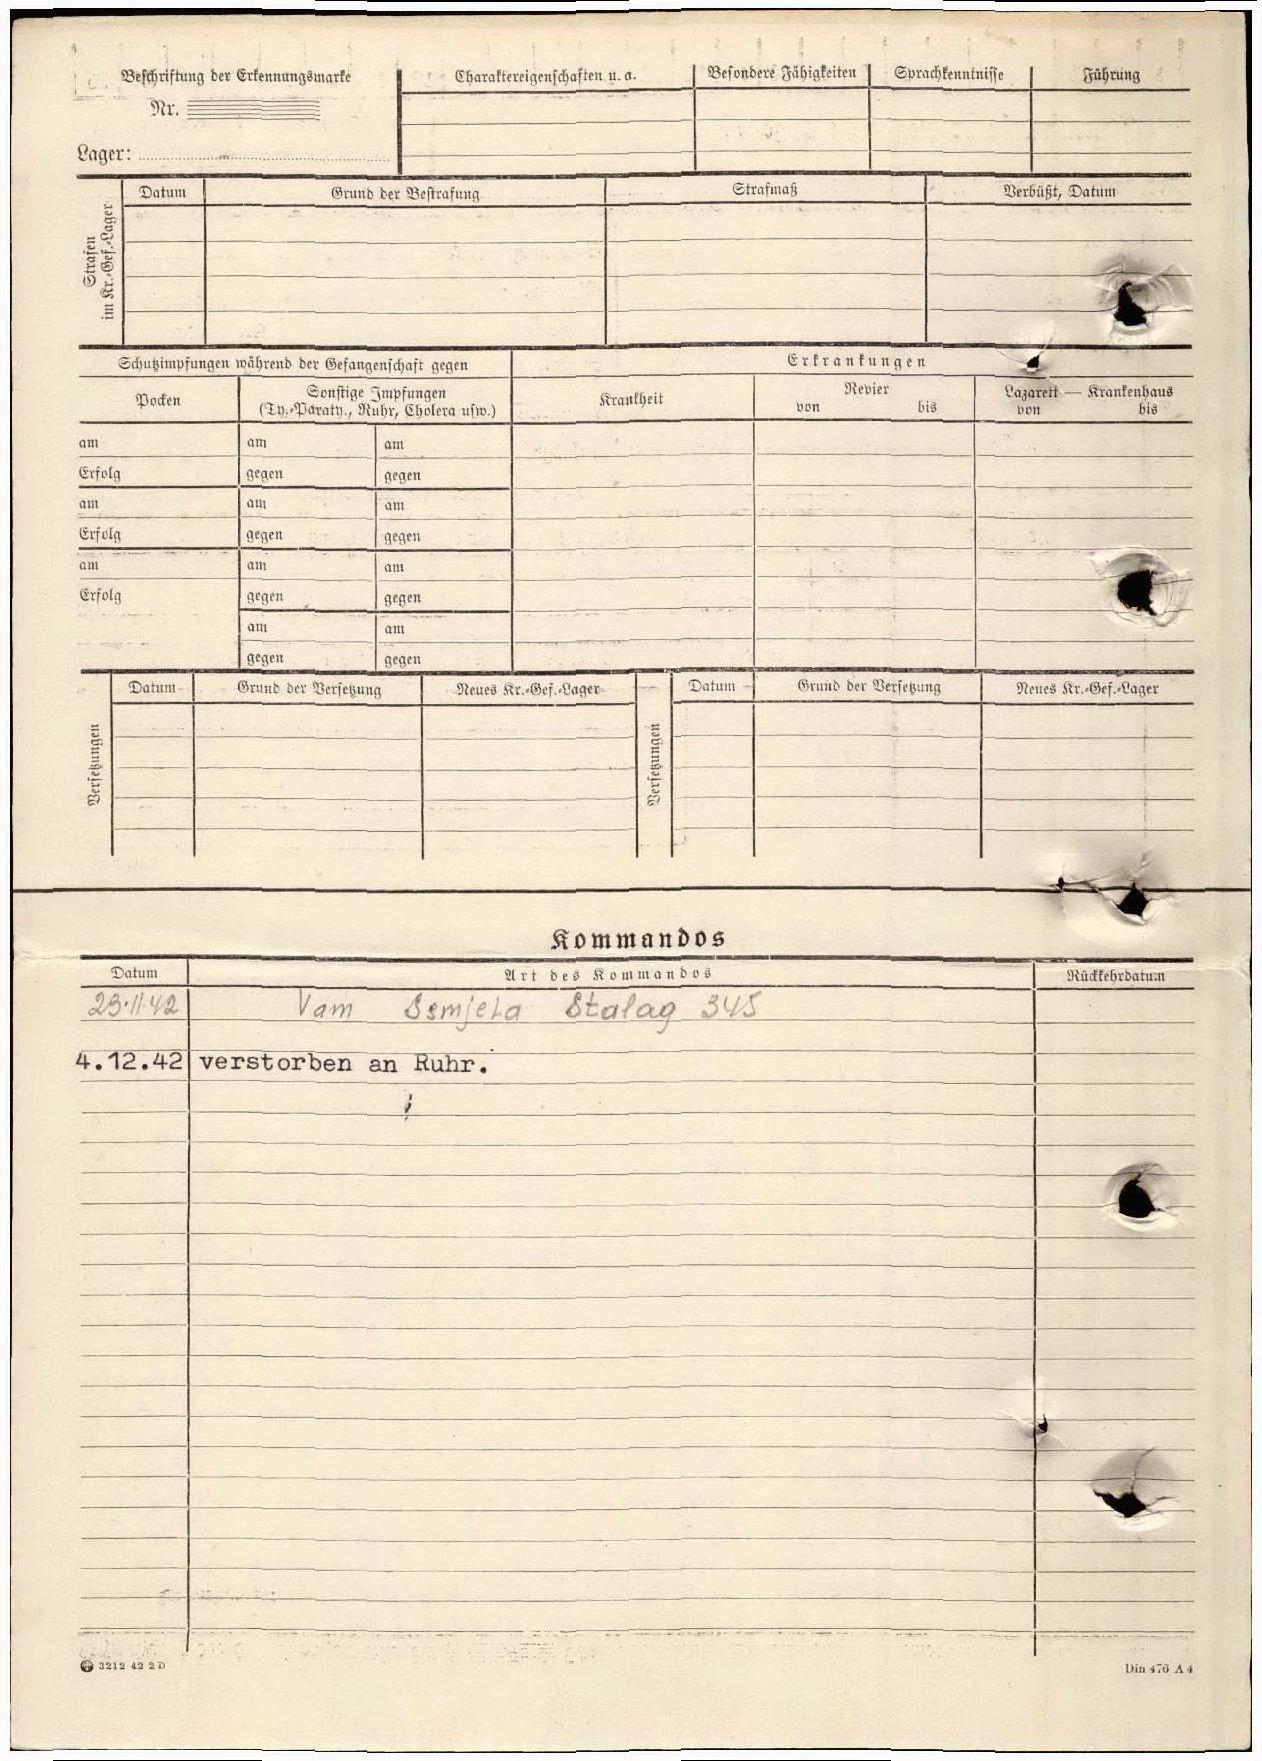 Beschriftung der Erkennungsmarke
Nr.
Lager:
Charaktereigenschaften u. a.
Besondere Fähigkeiten
Sprachkenntnisse
Führung
Strafen
im Kr.-Gef.-Lager
Datum
Grund der Bestrafung
Strafmaß
Verbüßt, Datum
Schutzimpfungen während der Gefangenschaft gegen
Erkrankungen
Pocken
Sonstige Impfungen
(Ty.-Paraty., Ruhr, Cholera usw.)
Krankheit
Revier
von bis
Lazarett — Krankenhaus
von bis
am am am
Erfolg gegen gegen
am am am
Erfolg gegen gegen
am am am
Erfolg gegen gegen
am am
gegen gegen
Versetzungen
Datum
Grund der Versetzung
Neues Kr.-Gef.-Lager
Versetzungen
Datum
Grund der Versetzung
Neues Kr.-Gef.-Lager
Kommandos
Datum
Art des Kommandos
Rückkehrdatum
23.11.42 Vam Ssmjela Stalag 345
4.12.42 verstorben an Ruhr.
3212 42 2 D
Din 476 A 4